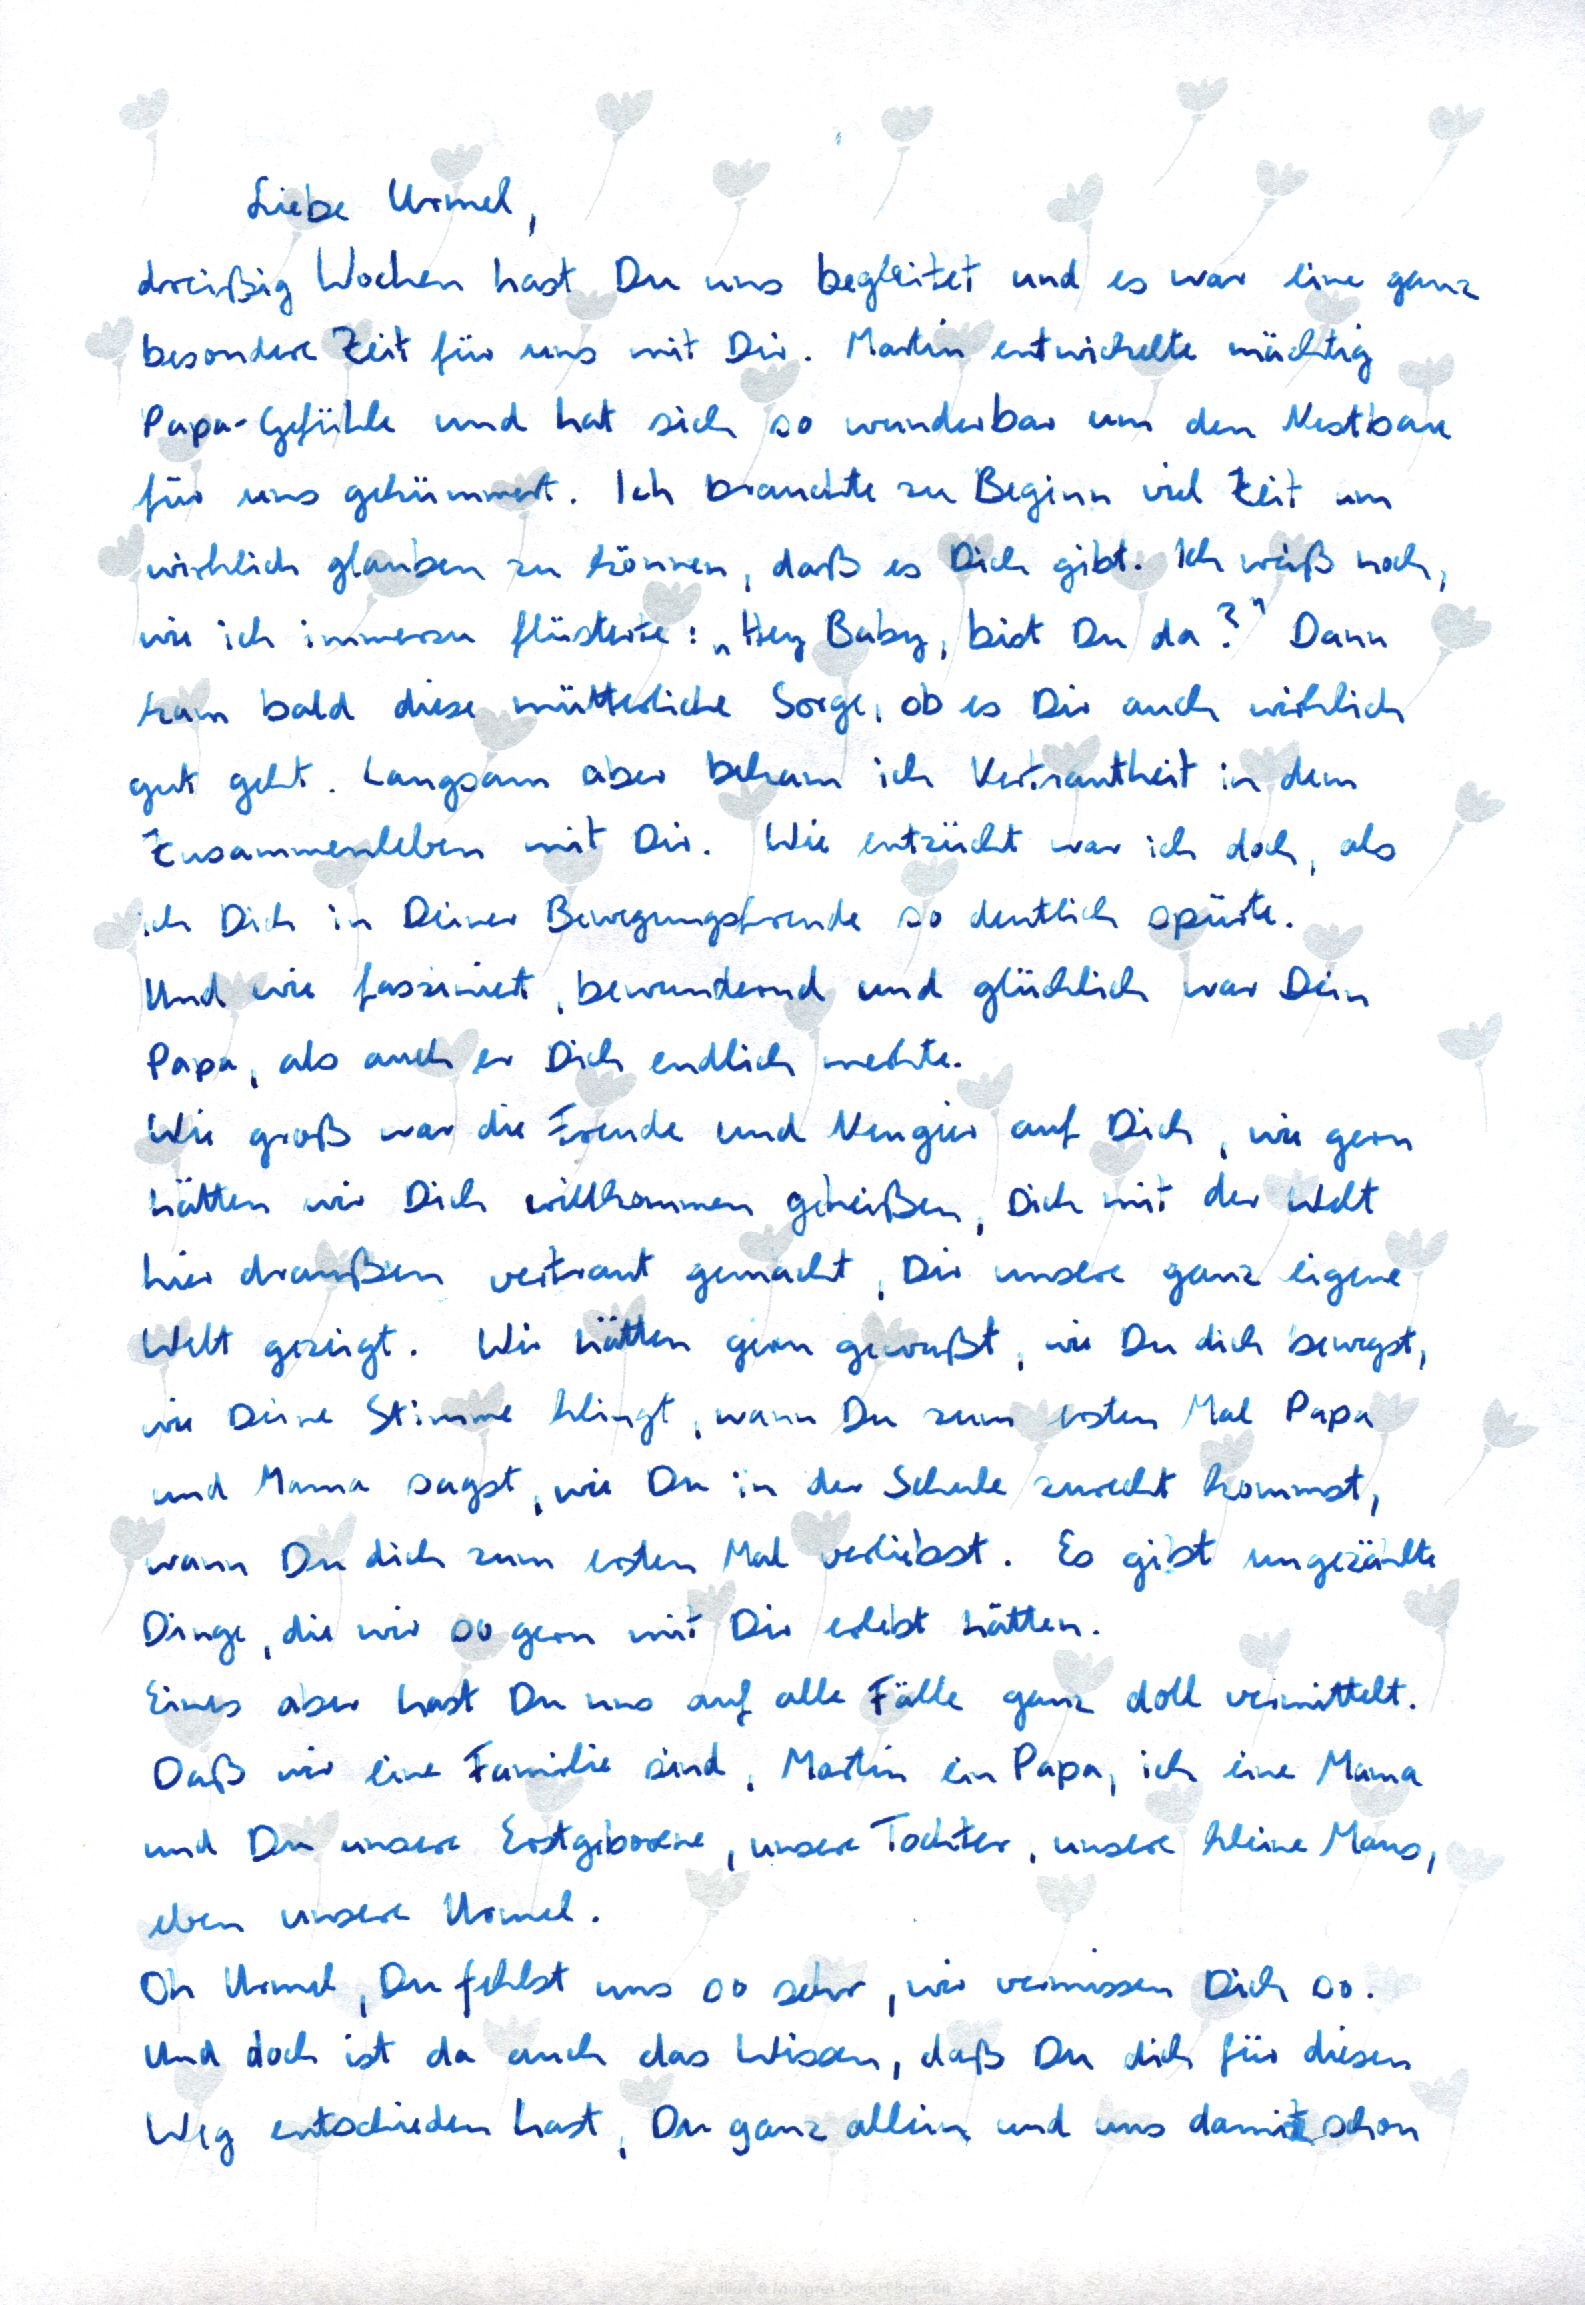 Liebe Urmel,
dreißig Wochen hast Du uns begleitet und es war eine ganz
besondere Zeit für uns mit Dir. Martin entwickelte mächtig
Papa-Gefühle und hat sich so wunderbar um den Nestbau
für uns gekümmert. Ich brauchte zu Beginn viel Zeit um
wirklich glauben zu können, daß es Dich gibt. Ich weiß noch,
wie ich immerzu flüsterte: „Hey Baby, bist Du da?" Dann
kam bald diese mütterliche Sorge, ob es Dir auch wirklich
gut geht. Langsam aber bekam ich Vertrautheit in dem
Zusammenleben mit Dir. Wie entzückt war ich doch, als
ich Dich in Deiner Bewegungsfreude so deutlich spürte.
Und wie fasziniert, bewundernd und glücklich war Dein
Papa, als auch er Dich endlich merkte.
Wie groß war die Freude und Neugier auf Dich, wie gern
hätten wir Dich willkommen geheißen, Dich mit der Welt
hier draußen vertraut gemacht, Dir unsere ganz eigene
Welt gezeigt. Wir hätten gern gewußt, wie Du dich bewegst,
wie Deine Stimme klingt, wann Du zum ersten Mal Papa
und Mama sagst, wie Du in der Schule zurecht kommst,
wann Du dich zum ersten Mal verliebst. Es gibt ungezählte
Dinge, die wir so gern mit Dir erlebt hätten.
Eines aber hast Du uns auf alle Fälle ganz doll vermittelt.
Daß wir eine Familie sind, Martin ein Papa, ich eine Mama
und Du unsere Erstgeborene, unsere Tochter, unsere kleine Maus,
eben unsere Urmel.
Oh Urmel, Du fehlst uns so sehr, wir vermissen Dich so.
Und doch ist da auch das Wissen, daß Du dich für diesen
Weg entschieden hast, Du ganz allein und uns damit schon